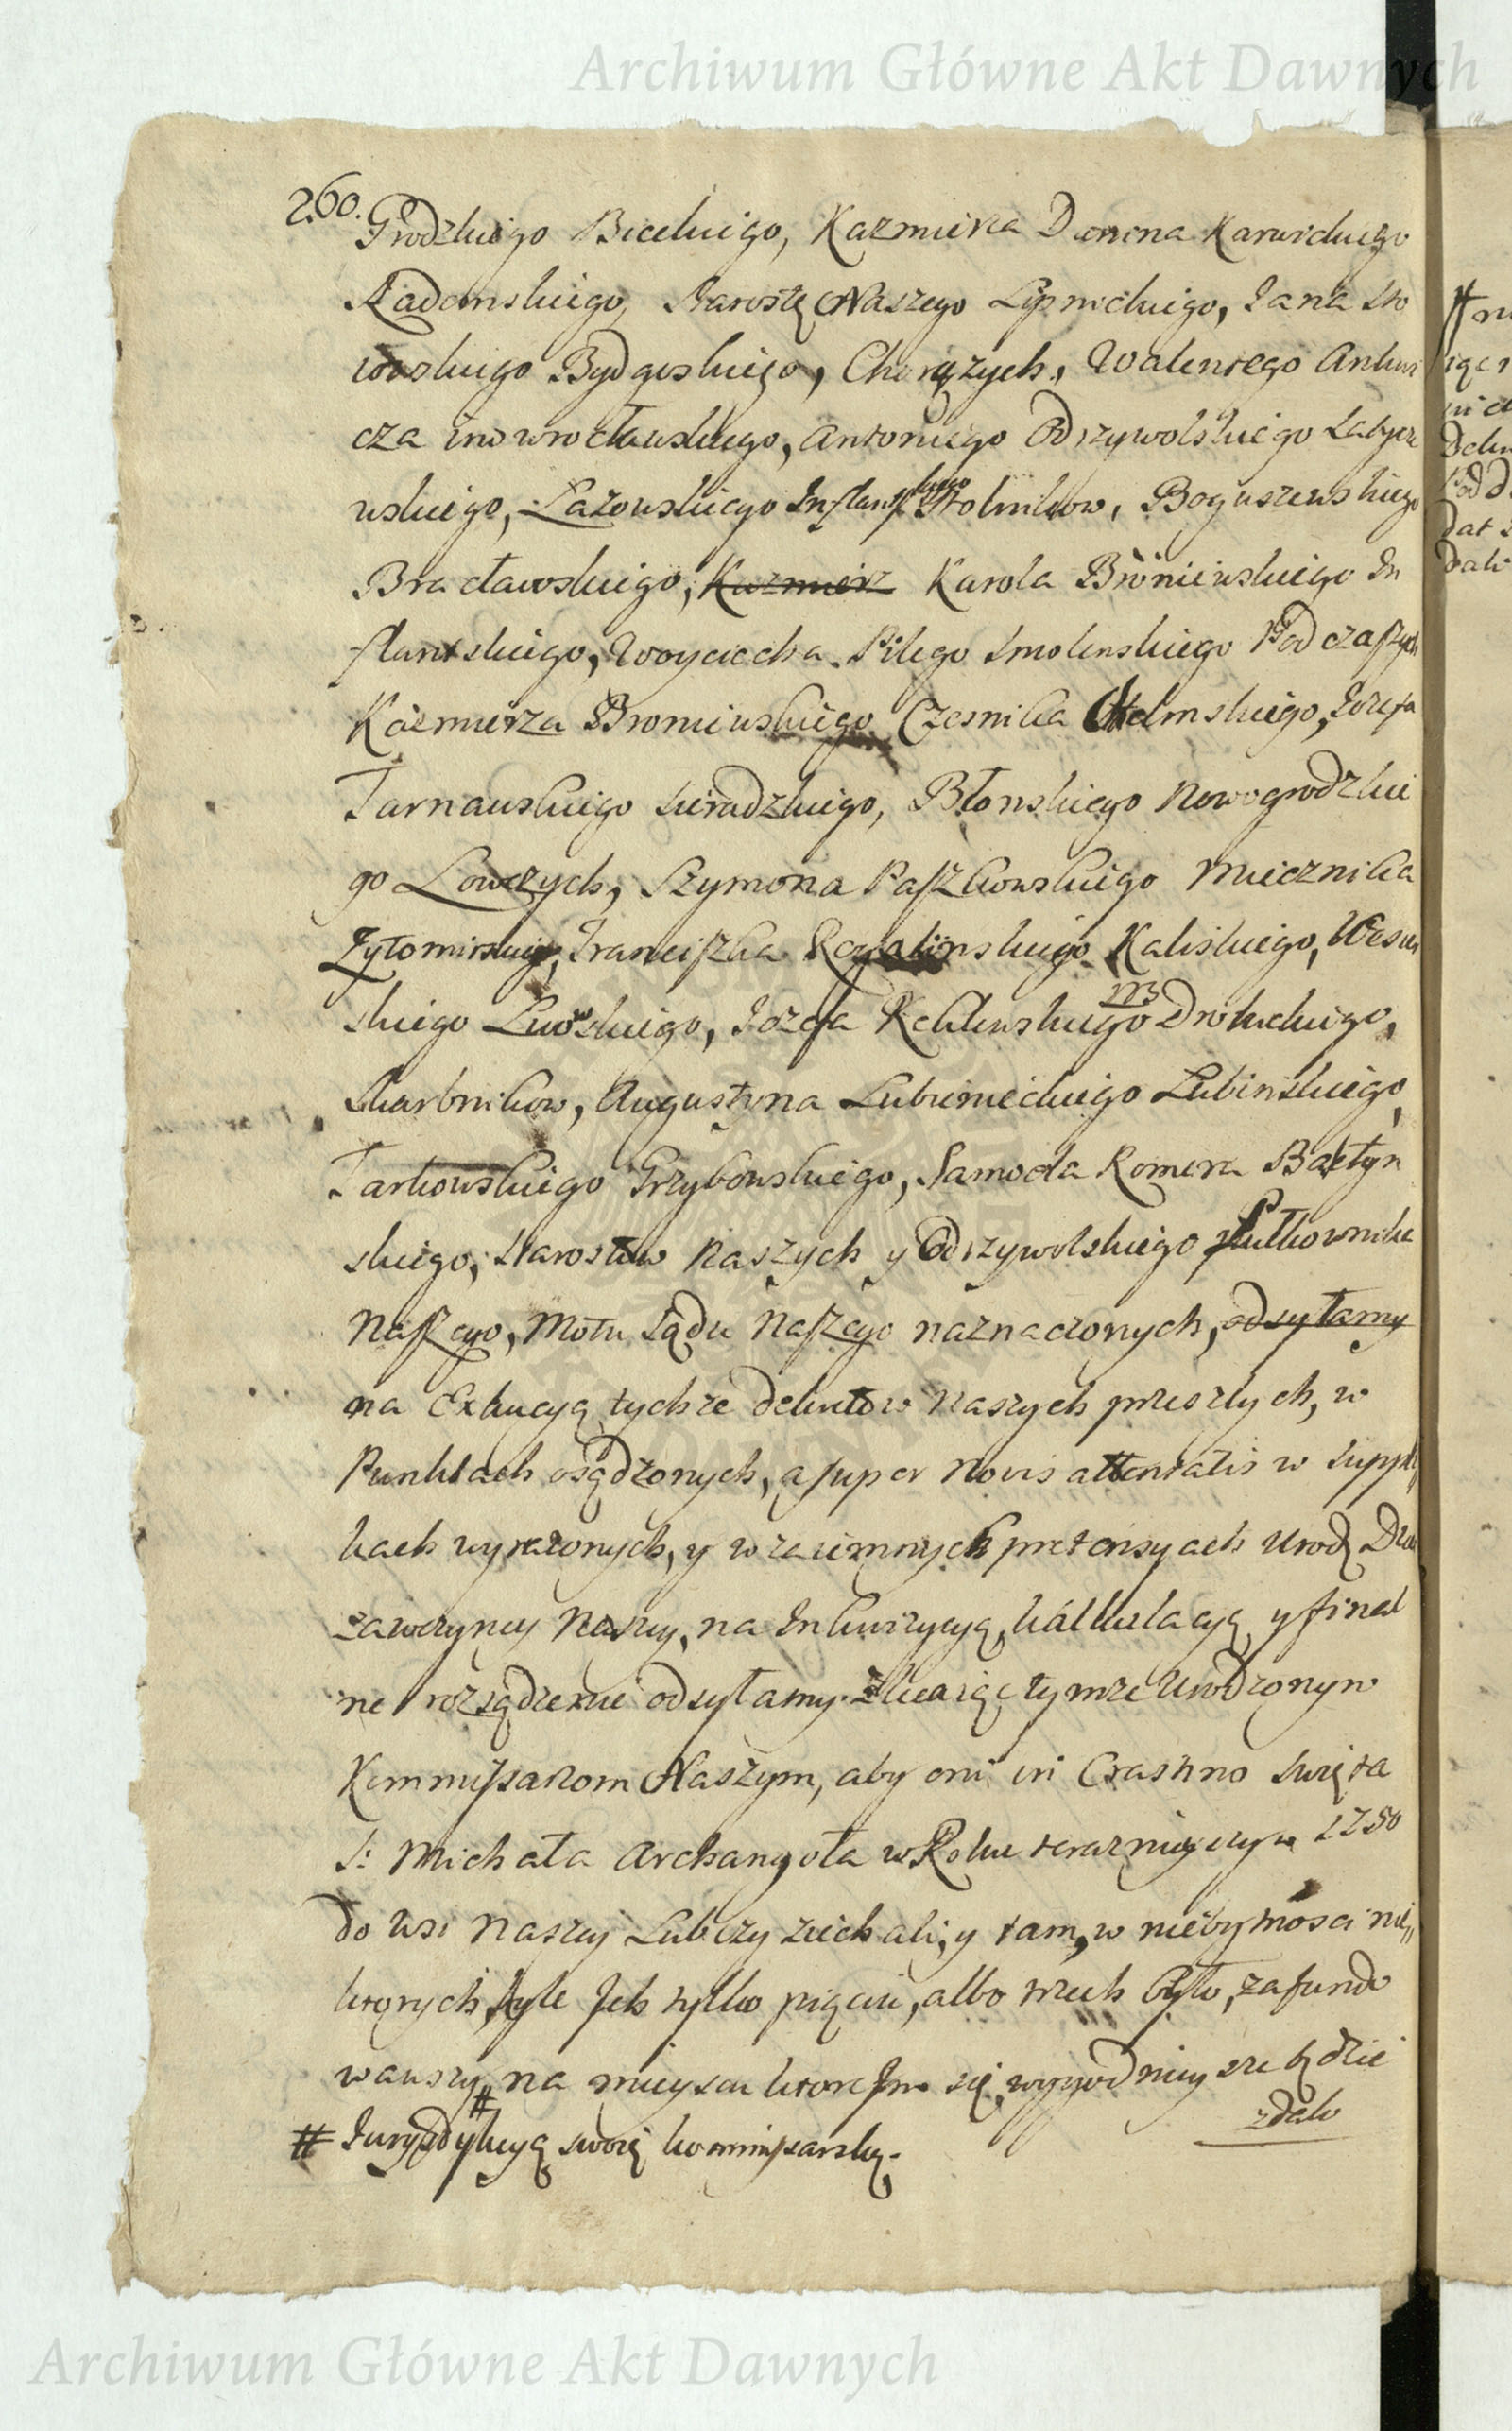 Archiwum Główne Akt Dawnych
260.
Grodzkiego Bieckiego, Kazmierza Donena Karwickiego
Radomskiego, Starostę Naszego Lipnickiego, Jana Sto
wskiego Bydgoskiego, Chorążych, Walentego Antoni
cza inowrocławskiego, Antoniego Odrzywolskiego Latycze
wskiego, Łazowskiego Inflantskiego Stolnikow, Boguszewskiego
Bracławskiego, Kazmierz Karola Broniewskiego In
flantskiego, Woyciecha Pilego Smolenskiego Podczaszych
Kazmierza Broniewskiego Czesnika Chełmskiego, Jozefa
Tarnawskiego Sieradzkiego, Błonskiego Nowogrodzkie
go Łowczych, Szymona Paszkowskiego Miecznika
Żytomirskiego, Franciszka Kaliskiego,
skiego Lwowskiego, Jozefa Drohickiego,
Skarbnikow, Augustyna Lubienieckiego Lubinskiego,
Tarkowskiego Grzybowskiego, Samoela Romera Bałtyn
skiego, Starostow Naszych y Odrzywolskiego Pułkownika
Naszego, Motu Sądu Naszego naznaczonych, odsyłamy
na Exkucyą tychze dekretow Naszych przeszłych, w
Punktach osądzonych, a super Novis attentatis w suppli
kach wyrazonych, y wzaiemnych pretensyach Urodz Dzier
zawczyney Naszey, na Inkwizycyą, kalkulacyą, y final
ne rozsądzenie odsyłamy. Zlecaiąc tymze Urodzonym
Kommissarzom Naszym, aby oni in Crastino swięta
S: Michała Archanyoła w Roku teraznieyszym 1750
do Wsi Naszey Lubczy ziechali, y tam, w niebytnosci nie
ktorych, byle Ich tylko pięciu, albo trzech było, zafundo
wawszy # na mieyscu ktore Im się wygodnieysze będzie
zdało
# Jurysdykcyą swoię kommissarską.
Archiwum Główne Akt Dawnych